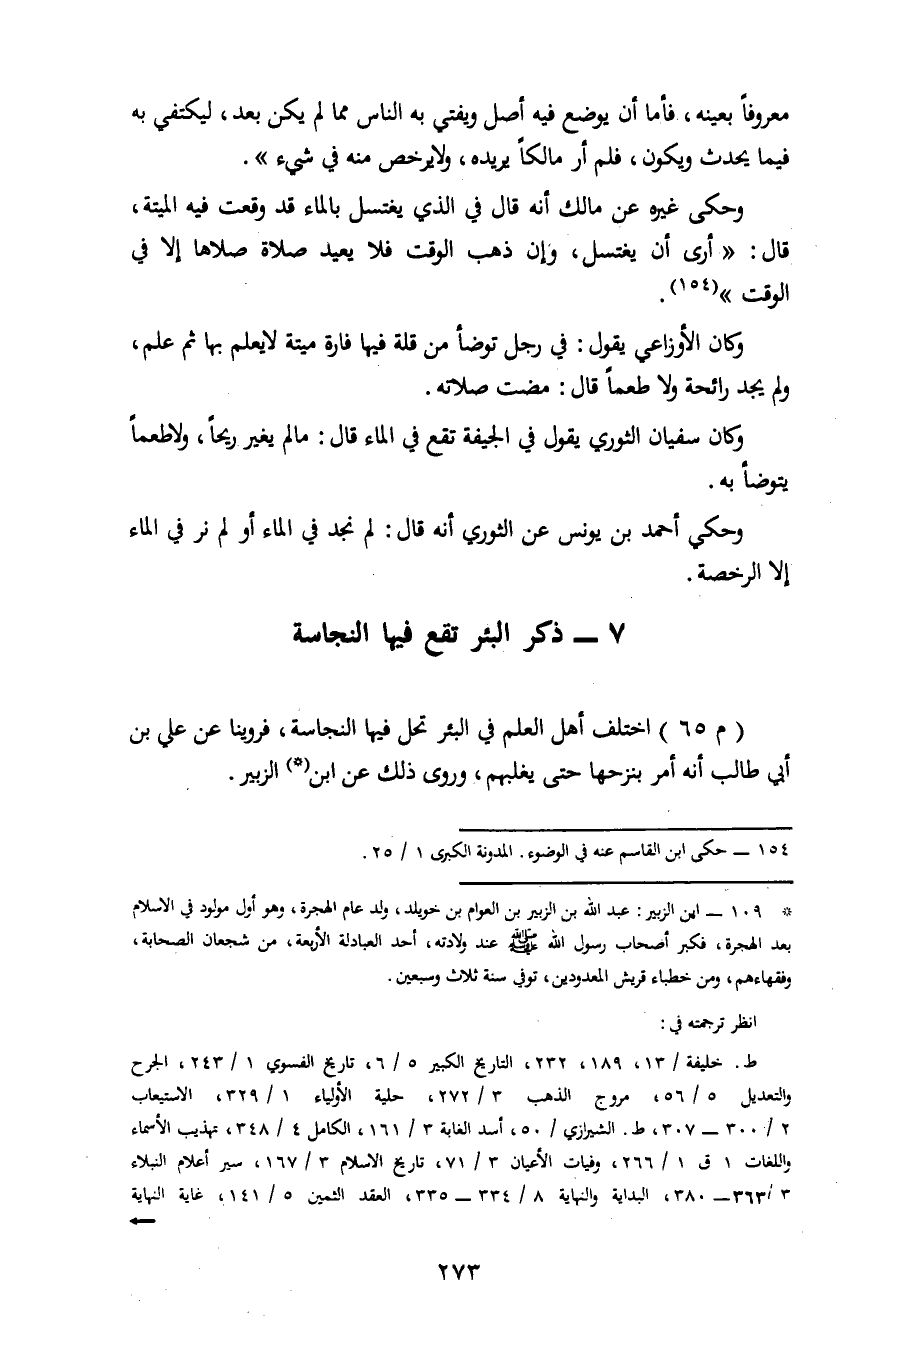 معروفاً بعينه ، فأما أن يوضع فيه أصل ويفتي به الناس مما لم يكن بعد ، ليكتفي به
فيما يحدث ويكون ، فلم أر مالكاً يريده ، ولايرخص منه في شيء » .
وحكى غيره عن مالك أنه قال في الذي يغتسل بالماء قد وقعت فيه الميتة ،
قال : « أرى أن يغتسل ، وإن ذهب الوقت فلا يعيد صلاة صلاها إلا في
الوقت »(١٥٤) .
وكان الأوزاعي يقول : في رجل توضأ من قلة فيها فارة ميتة لايعلم بها ثم علم ،
ولم يجد رائحة ولا طعماً قال : مضت صلاته .
وكان سفيان الثوري يقول في الجيفة تقع في الماء قال : مالم يغير ريحاً ، ولاطعماً
يتوضأ به .
وحكي أحمد بن يونس عن الثوري أنه قال : لم نجد في الماء أو لم نر في الماء
إلا الرخصة .
٧ ــ ذكر البئر تقع فيها النجاسة
( م ٦٥ ) اختلف أهل العلم في البئر تحل فيها النجاسة ، فروينا عن علي بن
أبي طالب أنه أمر بنزحها حتى يغلبهم ، وروى ذلك عن ابن(*) الزبير .
١٥٤ ــ حكى ابن القاسم عنه في الوضوء . المدونة الكبرى ١ / ٢٥ .
* ١٠٩ ــ ابن الزبير : عبد الله بن الزبير بن العوام بن خويلد ، ولد عام الهجرة ، وهو أول مولود في الاسلام
بعد الهجرة ، فكبر أصحاب رسول الله ﷺ عند ولادته ، أحد العبادلة الأربعة ، من شجعان الصحابة ،
وفقهاءهم ، ومن خطباء قريش المعدودين ، توفي سنة ثلاث وسبعين .
انظر ترجمته في :
ط . خليفة / ١٣ ، ١٨٩ ، ٢٣٢ ، التاريخ الكبير ٥ / ٦ ، تاريخ الفسوي ١ / ٢٤٣ ، الجرح
والتعديل ٥ / ٥٦ ، مروج الذهب ٣ / ٢٧٢ ، حلية الأولياء ١ / ٣٢٩ ، الاستيعاب
٢ / ٣٠٠ ــ ٣٠٧ ، ط . الشيرازي / ٥٠ ، أسد الغابة ٣ / ١٦١ ، الكامل ٤ / ٣٤٨ ، تهذيب الأسماء
واللغات ١ ق ١ / ٢٦٦ ، وفيات الأعيان ٣ / ٧١ ، تاريخ الاسلام ٣ / ١٦٧ ، سير أعلام النبلاء
٣ /٣٦٣ ــ ٣٨٠ ، البداية والنهاية ٨ / ٣٣٤ ــ ٣٣٥ ، العقد الثمين ٥ / ١٤١ ، غاية النهاية
←
٢٧٣